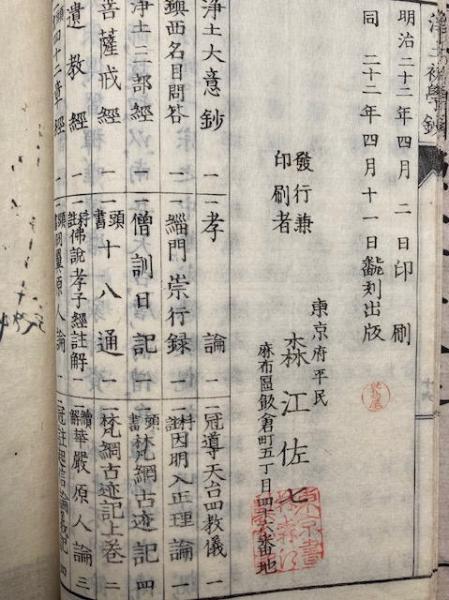 浄土初學鈔
明治二十二年四月 二日印刷
同 二十二年四月十一日飜刻出版
發行兼
印刷者
東京府平民
森江佐七
麻布區飯倉町五丁目四十六番地
浄土大意鈔 一
孝論 一
冠導天台四教儀 一
鎮西名目問答 一
緇門崇行録 一
科註因明入正理論 一
浄土三部經 一
僧訓日記 一
頭書梵網古迹記 四
菩薩戒經 一
頭書十八通 二
梵網古迹記上卷 二
遺教經 一
科註佛説孝子經註解 一
華嚴原人論 三
四十二章經 一
原人論 一